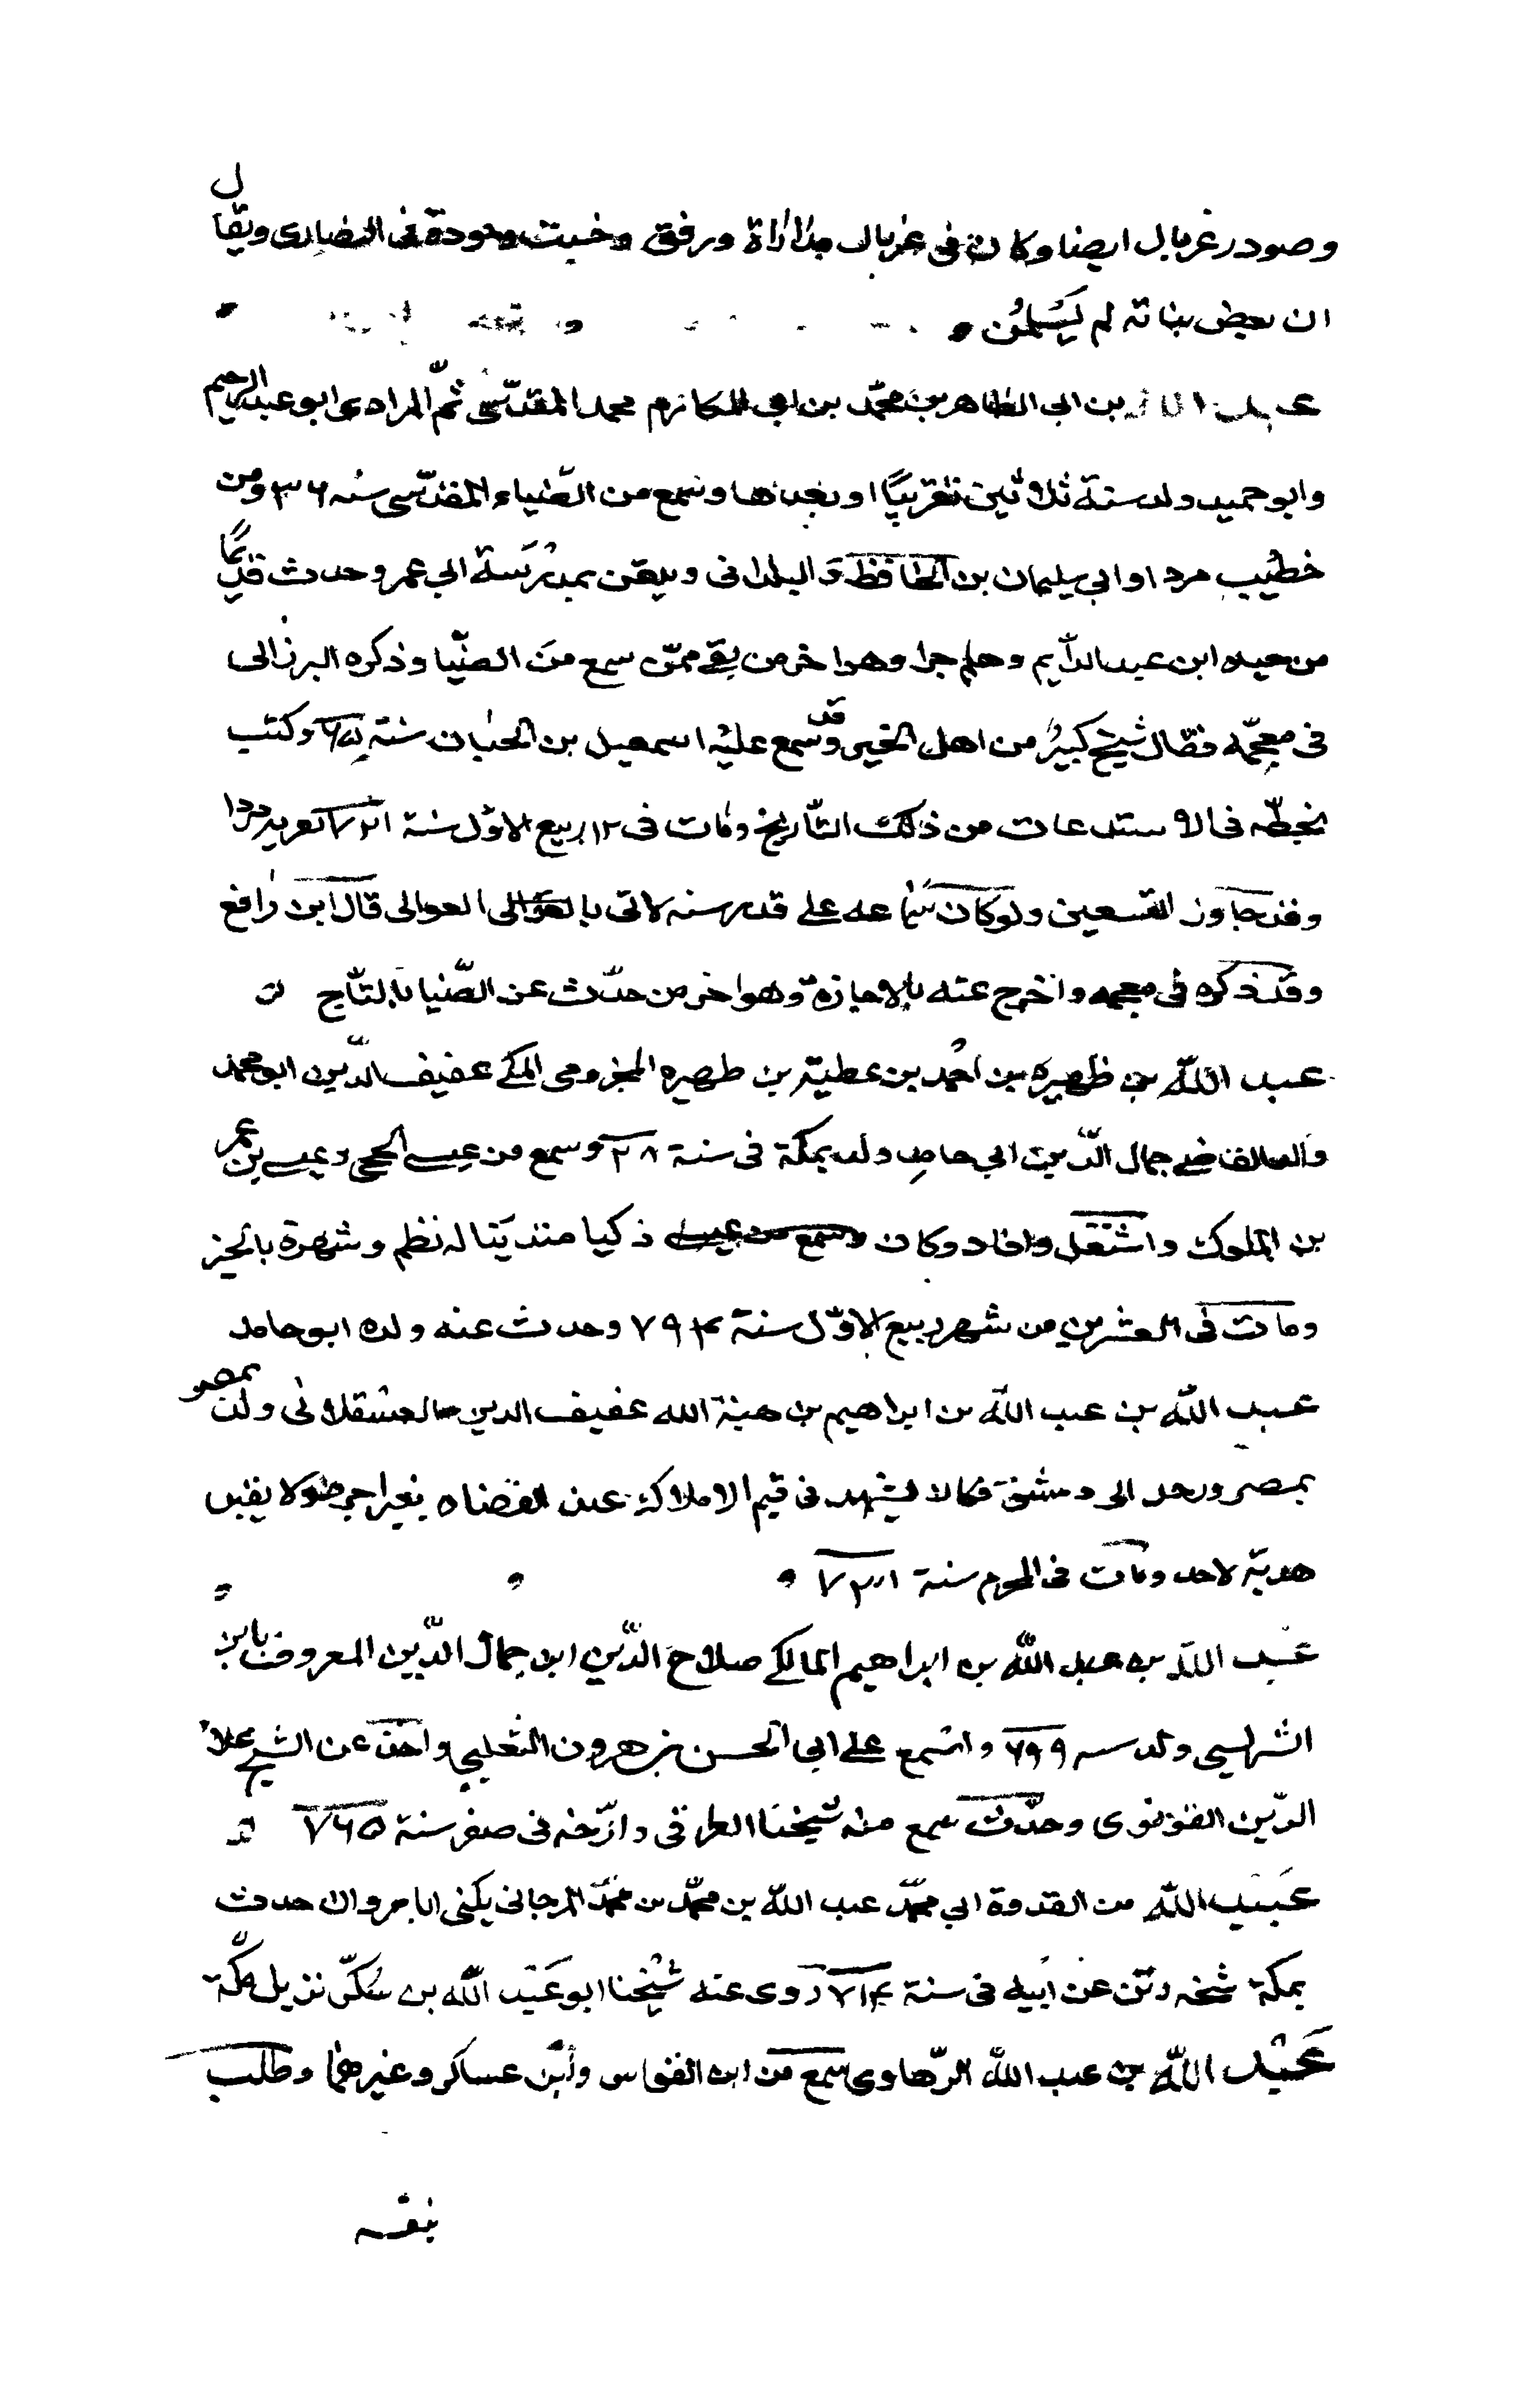 وصودر غربال ايضا وكان فى غربال مداراة ورفق وخبث وجودة فى النصارى ويقال
ان بعض بناته لم يسلمن
عبد الله بن ابى الطاهر بن محمد بن ابى المكارم محمد المقدسى ثم المرادى ابو عبد الرحيم
وابو حميد ولد سنة ثلاثين تقريبًا او بعدها وسمع من الضياء المقدسى سنه ٦٣٦ ومن
خطيب مردا وابى سليمان بن الحافظ و البلدانى ويلقن بمدرسة ابى عمر وحدث قديمًا
من حياه ابن عبد الدايم وهلم جرا وهو اخر من بقى ممن سمع من الضيا وذكره البرزالى
فى معجمه فقال شيخ كبير من اهل الخير وقد سمع عليه اسمعيل بن الخباز سنة وكتب
بخطه فى الاستدعات من ذلك التاريخ ومات فى ١٢ ربيع الاول سنة ٧٢١ بقرية مردا
وقد جاوز التسعين ولو كان سماعه على قدر سنه لاتى بالعوالى العوالى قال ابن رافع
وقد ذكره فى معجمه واخرج عنه بالاجازة وهو اخر من حدث عن الضيا بالتاج
عبد الله بن ظهيره بن احمد بن عطية بن ظهيره المخزومى المكى عفيف الدين ابو محمد
والد القاضى جمال الدين ابى حامد ولد بمكة فى سنة ٢٨ وسمع من عيسى الحجى وعيسى بن عمر
بن الملوك واشتغل وافاد وكان وسمع من عيسى ذكيا متدينا له نظم وشهرة بالخير
ومات فى العشرين من شهر ربيع الاول سنة ٧٩٤ وحدث عنه ولده ابو حامد
عبد الله بن عبد الله بن ابراهيم بن هبة الله عفيف الدين العسقلانى ولد بمصر
بمصر ورحل الى دمشق فكان يشهد فى قيم الاملاك عند القضاه بغير اجر ولا يقبل
هدية لاحد ومات فى المحرم سنة ٧٣١
عبد الله بن عبد الله بن ابراهيم المالكى صلاح الدين ابن جمال الدين المعروف بابن
ولد سنه ٦٩٩ واسمع على ابى الحسن بن هرون الثعلبى واخذ عن الشيخ علاء
الدين القونوى وحدث سمع منه شيخنا العراقى وارخه فى صفر سنة ٧٦٥
عبد الله بن القدوة ابى محمد عبد الله بن محمد بن محمد المرجانى يكنى ابا مروان حدث
بمكة عن ابيه فى سنة ٧١٤ روى عنه شيخنا ابو عبد الله بن سكر نزيل مكة
عبد الله بن عبد الله الرهاوى سمع من ابن القواس وابن عساكر وغيرهما وطلب
بنفسه